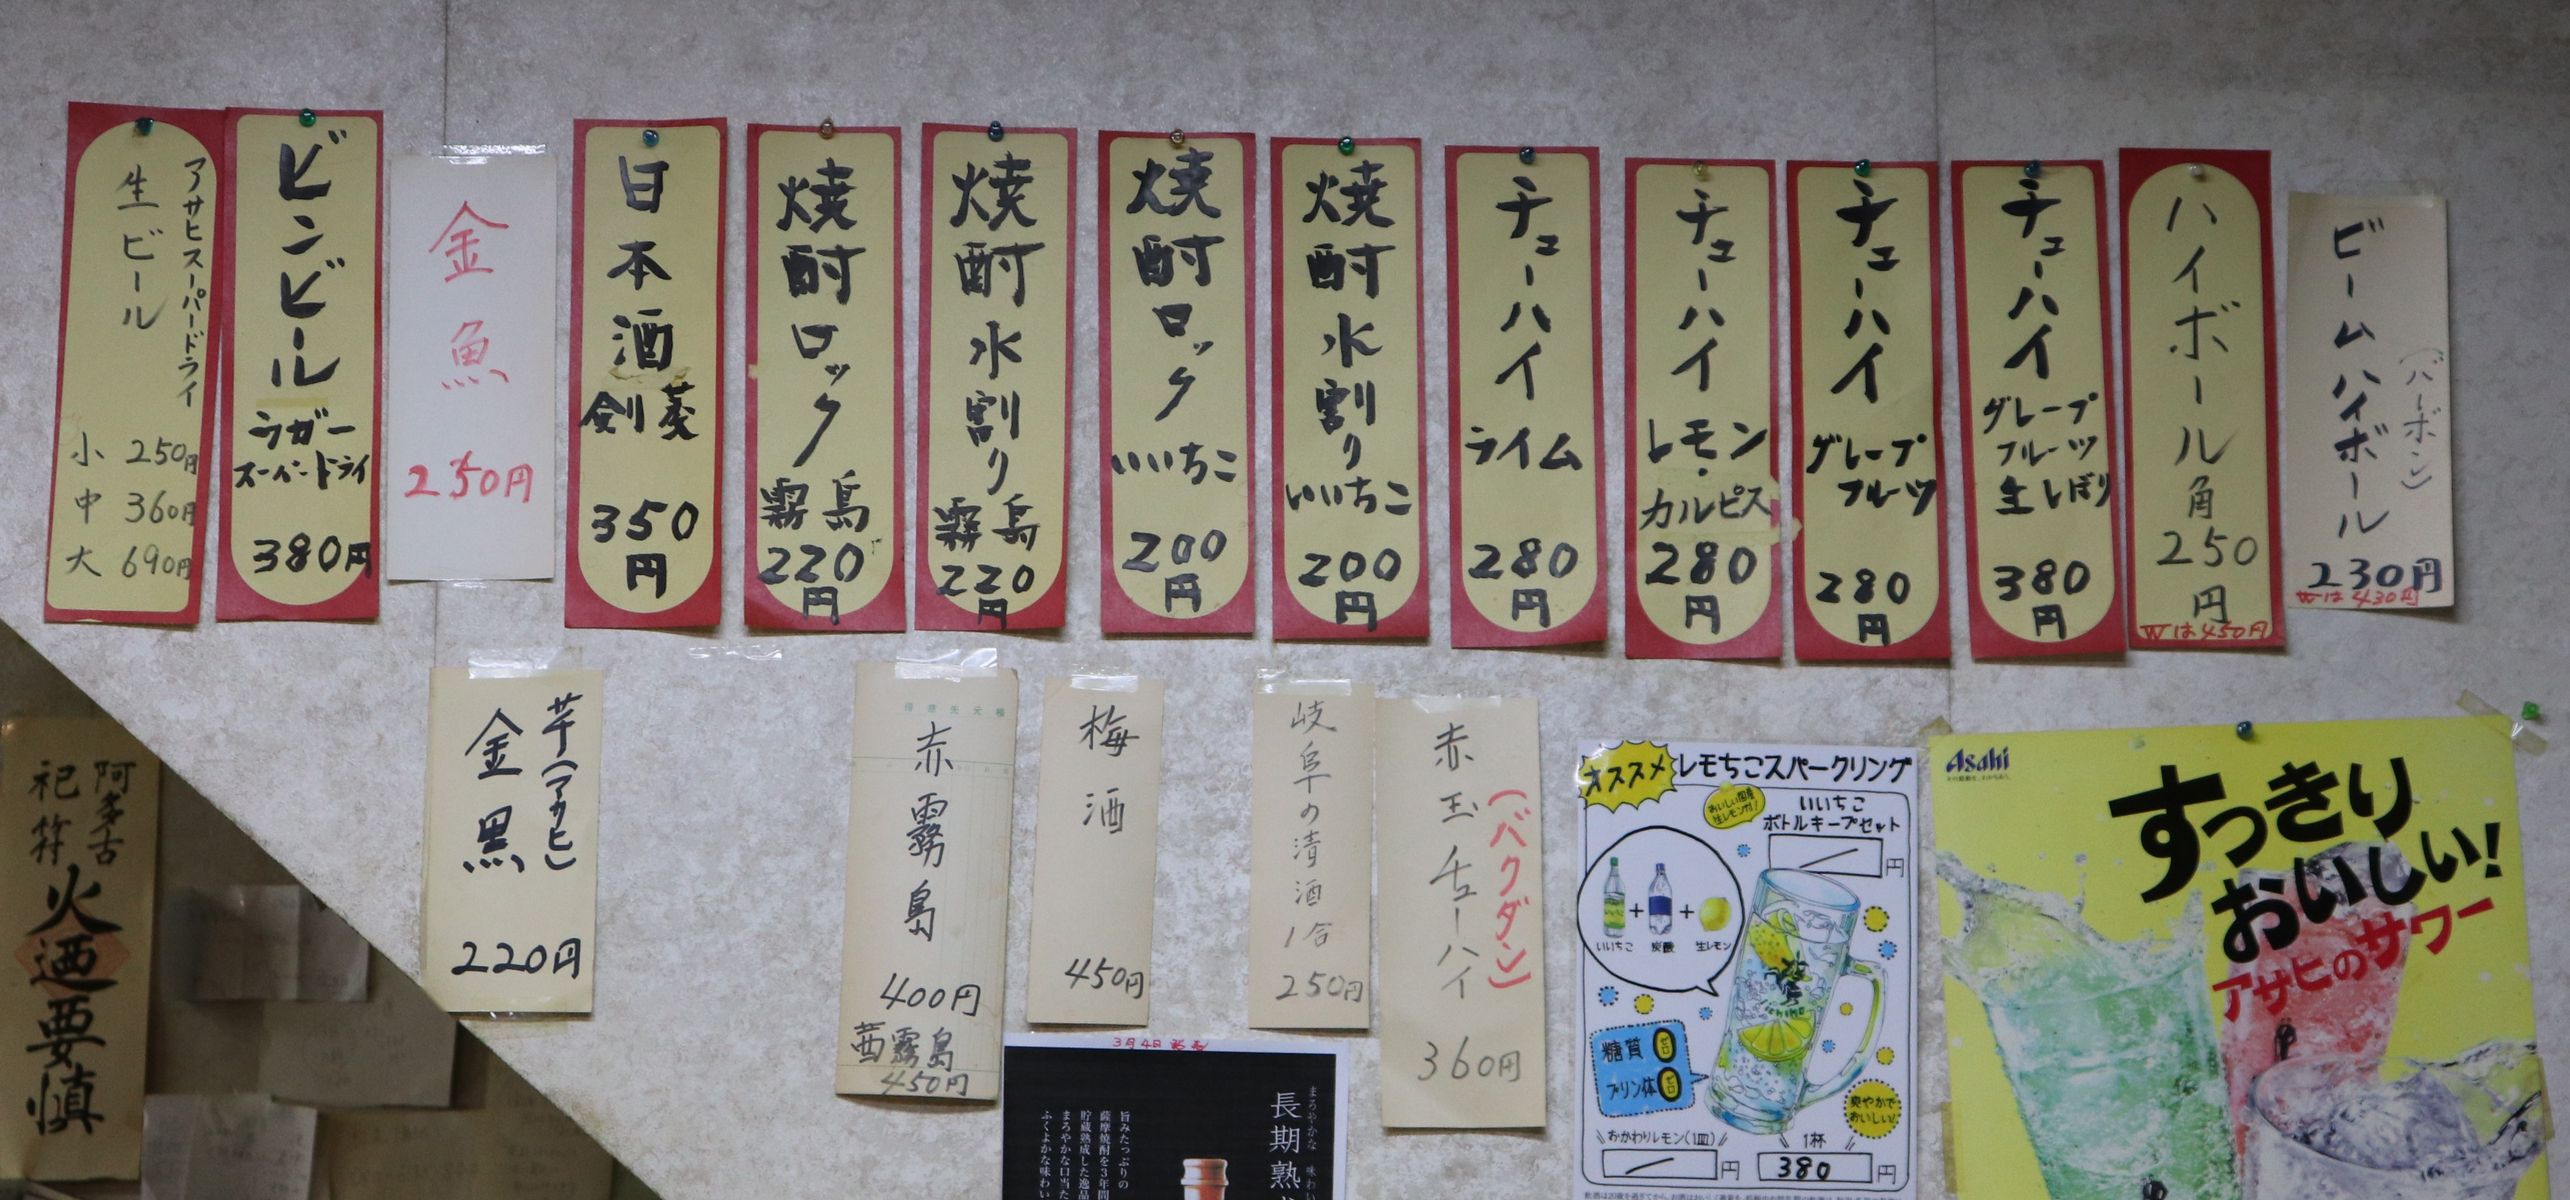 アサヒスーパードライ
生ビール
小 250円
中 360円
大 690円
ビンビール
ラガー
スーパードライ
380円
金魚
250円
日本酒
剣菱
350円
焼酎ロック
霧島
220円
焼酎水割り
霧島
220円
焼酎ロック
いいちこ
200円
焼酎水割り
いいちこ
200円
チューハイ
ライム
280円
チューハイ
レモン・
カルピス
280円
チューハイ
グレープ
フルーツ
280円
チューハイ
グレープ
フルーツ
生しぼり
380円
ハイボール角
250円
Wは450円
(バーボン)
ビームハイボール
230円
Wは430円
阿多古
祀符
火迺要慎
芋(アサヒ)
金黒
220円
赤霧島
400円
茜霧島
450円
梅酒
450円
岐阜の清酒1合
250円
(バクダン)
赤玉チューハイ
360円
3月4日発売
まろやかな 味わい
長期熟
旨みたっぷりの
薩摩焼酎を3年間
貯蔵熟成した逸品
まろやかな口当た
ふくよかな味わい
オススメ
レモちこスパークリング
おいしい国産
生レモン付!
いいちこ
ボトルキープセット
円
いいちこ + 炭酸 + 生レモン
糖質 ゼロ
プリン体 ゼロ
爽やかで
おいしい!
おかわりレモン(1皿)
円
1杯
380円
Asahi
すっきり
おいしい!
アサヒのサワー